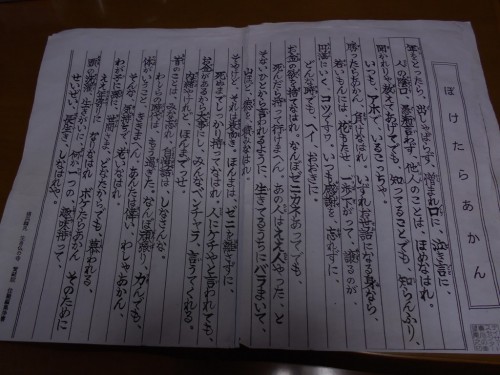 ぼけたらあかん
年をとったら、出しゃばらず、憎まれ口に、泣き言に、
人の陰口、愚痴言わず、他人のことは、ほめなはれ。
聞かれりゃ教えてあげても、知ってることでも、知らんふり、
いつも、アホで、いるこっちゃ。
勝ったらあかん、負けなはれ、いずれお世話になる身なら、
若いもんには、花もたせ、一歩下がって、譲るのが、
円満にいく、コツですワ。いつも感謝を、忘れずに、
どんな時でも、へイ、おおきに。
お金の欲を捨てなはれ。なんぼゼニカネあってでも、
死んだら持って行けまへん。あの人は、ええ人やった、と
そないひとから、言われるように、生きてるうちに、バラまいて、
山ほど、徳を、積みなはれ。
そやけど、それは表向き、ほんまは、ゼニを離さずに、
死ぬまでしっかり、持ってなはれ。人にケチやと言われても、
お金があるから、大事にし、みんな、ベンチャラ、言うてくれる。
内緒やけれど、ほんまでっせ。
昔のことは、みな忘れ、自慢話は、しなさんな。
わしらの時代は、もう過ぎた。なんぼ頑張り、力んでも、
体がいうこと、ききまへん。あんたは偉い、わしゃあかん、
そんな気持ちで、おりなはれ。
わが子に孫に、世間さま、どなたからでも、慕われる、
ええ年寄りに、なりなはれ。ボケたらあかん、そのために
頭の洗濯、生きがいに、何か一つの、趣味持って、
せいぜい、長生き、しなはれや。